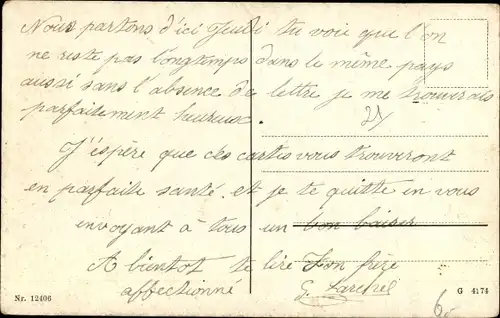 Nous partons d'ici Jeudi tu vois que l'on
ne reste pas longtemps dans le même pays
aussi sans l'absence de lettre je me trouverais
parfaitement heureux.
J'espère que ces cartes vous trouveront
en parfaite santé et je te quitte en vous
envoyant à tous un bon baiser
A bientot te lire Ton frère
affectionné G.
Nr. 12406
G 4174